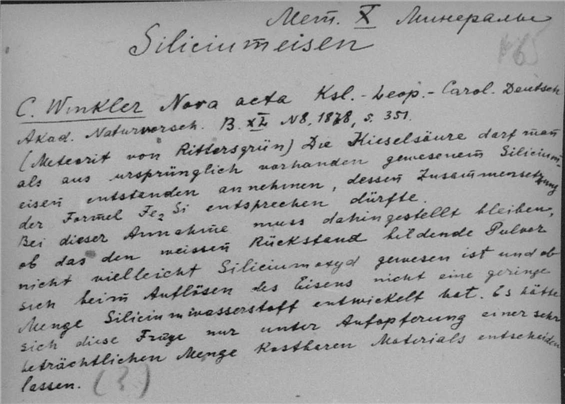 Мет. X Минералы
65
Siliciumeisen
C. Winkler Nova acta Ksl.-Leop.-Carol. Deutsch
Akad. Naturforsch. B. XL N8, 1878, s. 351.
(Meteorit von Rittersgrün) Die Kieselsäure darf man
als aus ursprünglich vorhanden gewesenem Silicium-
eisen entstanden annehmen, dessen Zusammensetzung
der Formel Fe2Si entsprechen dürfte.
Bei dieser Annahme muss dahingestellt bleiben,
ob das den weissen Rückstand bildende Pulver
nicht vielleicht Siliciumoxyd gewesen ist und ob
sich beim Auflösen des Eisens nicht eine geringe
Menge Siliciumwasserstoff entwickelt hat. Es hätte
sich diese Frage nur unter Aufopferung einer sehr
beträchtlichen Menge kostbaren Materials entscheiden
lassen. (?)